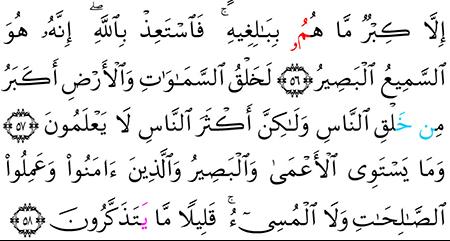 إِلَّا كِبْرٌ مَّا هُمُۥ بِبَٰلِغِيهِ ۚ فَٱسْتَعِذْ بِٱللَّهِ ۖ إِنَّهُۥ هُوَ
ٱلسَّمِيعُ ٱلْبَصِيرُ ۝٥٦ لَخَلْقُ ٱلسَّمَٰوَٰتِ وَٱلْأَرْضِ أَكْبَرُ
مِن خَلْقِ ٱلنَّاسِ وَلَٰكِنَّ أَكْثَرَ ٱلنَّاسِ لَا يَعْلَمُونَ ۝٥٧
وَمَا يَسْتَوِى ٱلْأَعْمَىٰ وَٱلْبَصِيرُ وَٱلَّذِينَ ءَامَنُوا۟ وَعَمِلُوا۟
ٱلصَّٰلِحَٰتِ وَلَا ٱلْمُسِىٓءُ ۚ قَلِيلًا مَّا يَتَذَكَّرُونَ ۝٥٨